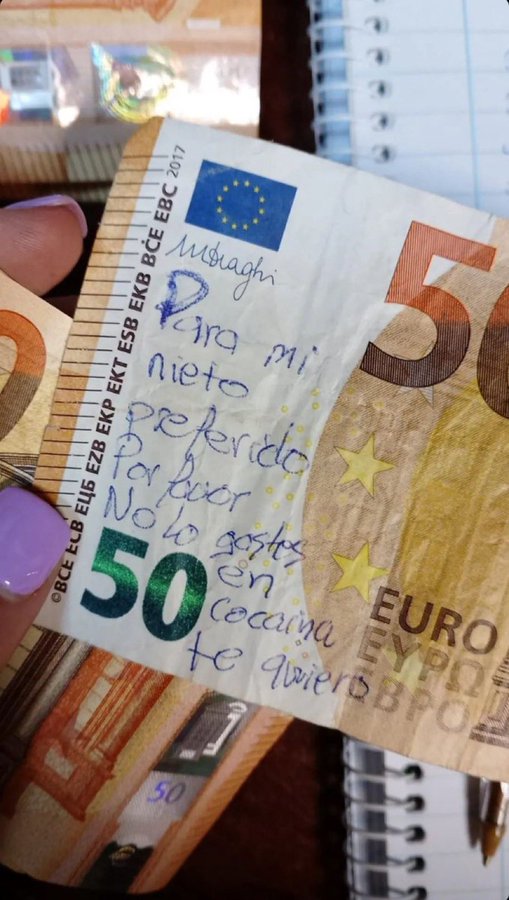 ©BCE ECB ЕЦБ EZB EKP EKT ESB EKB BĊE EBC 2017
MDraghi
Para mi
nieto
preferido
Por favor
No lo gastes
en
cocaina
te quiero
50
50
EURO
ΕΥΡΩ
ЕВРО
50